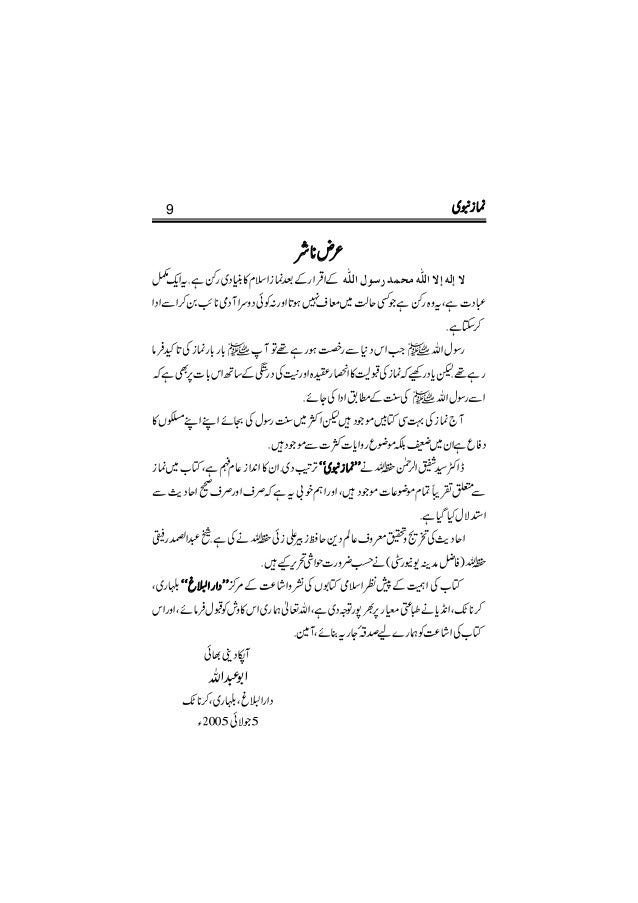 نماز نبوی 9
عرض ناشر
لا إله إلا الله محمد رسول الله کے اقرار کے بعد نماز اسلام کا بنیادی رکن ہے، یہ ایک مکمل
عبادت ہے، یہ وہ رکن ہے جو کسی حالت میں معاف نہیں ہوتا اور نہ کوئی دوسرا آدمی نائب بن کر اسے ادا
کر سکتا ہے۔
رسول اللہ ﷺ جب اس دنیا سے رخصت ہو رہے تھے تو آپ ﷺ بار بار نماز کی تاکید فرما
رہے تھے لیکن یاد رکھیے کہ نماز کی قبولیت کا انحصار عقیدہ اور نیت کی درستگی کے ساتھ اس بات پر بھی ہے کہ
اسے رسول اللہ ﷺ کی سنت کے مطابق ادا کی جائے۔
آج نماز کی بہت سی کتابیں موجود ہیں لیکن اکثر میں سنت رسول کی بجائے اپنے اپنے مسلکوں کا
دفاع ہے ان میں ضعیف بلکہ موضوع روایات کثرت سے موجود ہیں۔
ڈاکٹر سید شفیق الرحمٰن حفظہ اللہ نے ”نماز نبوی“ ترتیب دی۔ ان کا انداز عام فہم ہے، کتاب میں نماز
سے متعلق تقریباً تمام موضوعات موجود ہیں، اور اہم خوبی یہ ہے کہ صرف اور صرف صحیح احادیث سے
استدلال کیا گیا ہے۔
احادیث کی تخریج و تحقیق معروف عالم دین حافظ زبیر علی زئی حفظہ اللہ نے کی ہے شیخ عبدالصمد رفیقی
حفظہ اللہ (فاضل مدینہ یونیورسٹی) نے حسب ضرورت حواشی تحریر کیے ہیں۔
کتاب کی اہمیت کے پیش نظر اسلامی کتابوں کی نشر و اشاعت کے مرکز ”دارالبلاغ“ بلہاری،
کرناٹک، انڈیا نے طباعتی معیار پر بھرپور توجہ دی ہے، اللہ تعالیٰ ہماری اس کاوش کو قبول فرمائے، اور اس
کتاب کی اشاعت کو ہمارے لیے صدقۂ جاریہ بنائے، آمین۔
آپکا دینی بھائی
ابو عبداللہ
دارالبلاغ، بلہاری، کرناٹک
5 جولائی 2005ء